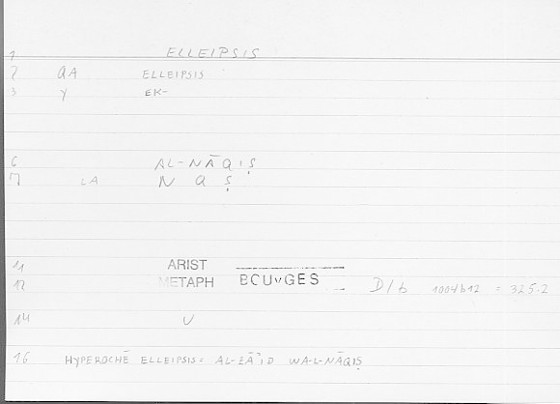 1 ELLEIPSIS
2 QA ELLEIPSIS
3 Y EK-
6 AL-NĀQIṢ
7 LA N Q Ṣ
11 ARIST
12 METAPH BOUYGES D/b 1004b12 = 325-2
14 U
16 HYPEROCHĒ ELLEIPSIS = AL-ZĀʾID WA-L-NĀQIṢ